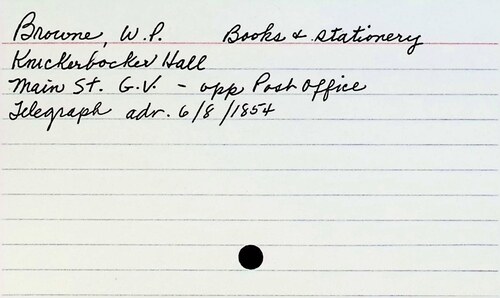 Browne, W.P. Books & stationery
Knickerbocker Hall
Main St. G.V. - opp Post Office
Telegraph adv. 6/8/1854